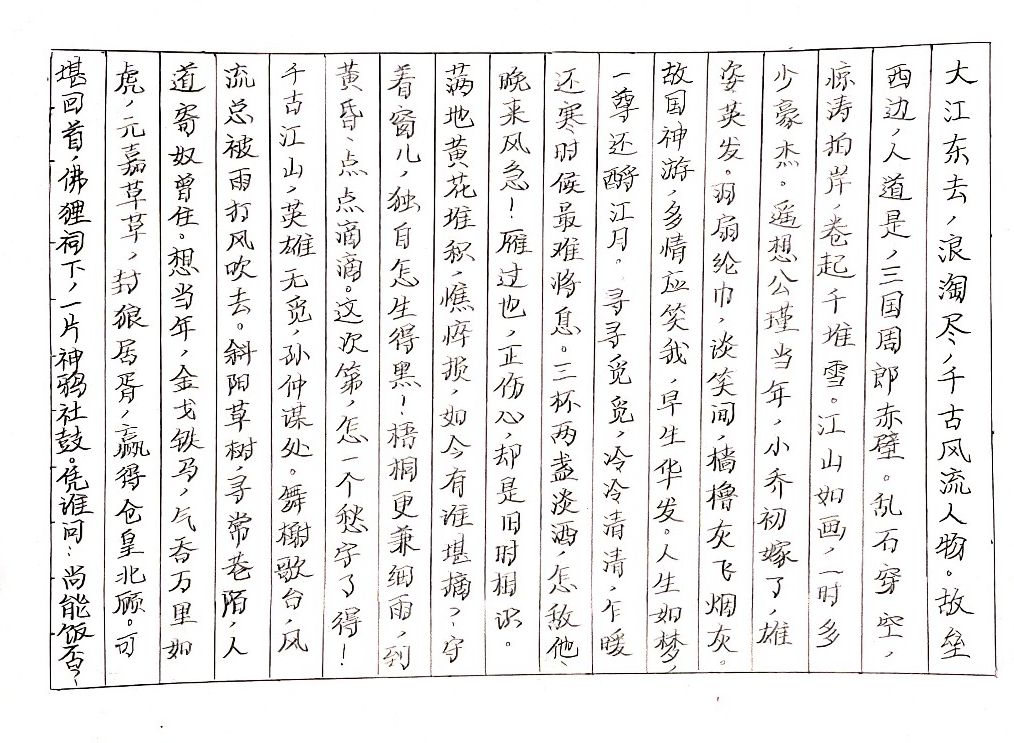 大江东去,浪淘尽,千古风流人物。故垒
西边,人道是,三国周郎赤壁。乱石穿空,
惊涛拍岸,卷起千堆雪。江山如画,一时多
少豪杰。遥想公瑾当年,小乔初嫁了,雄
姿英发。羽扇纶巾,谈笑间,樯橹灰飞烟灰。
故国神游,多情应笑我,早生华发。人生如梦,
一尊还酹江月。寻寻觅觅,冷冷清清,乍暖
还寒时候最难将息。三杯两盏淡酒,怎敌他、
晚来风急!雁过也,正伤心,却是旧时相识。
满地黄花堆积,憔悴损,如今有谁堪摘?守
着窗儿,独自怎生得黑!梧桐更兼细雨,到
黄昏、点点滴滴。这次第,怎一个愁字了得!
千古江山,英雄无觅,孙仲谋处。舞榭歌台,风
流总被雨打风吹去。斜阳草树,寻常巷陌,人
道寄奴曾住。想当年,金戈铁马,气吞万里如
虎,元嘉草草,封狼居胥,赢得仓皇北顾。可
堪回首,佛狸祠下,一片神鸦社鼓。凭谁问:尚能饭否?